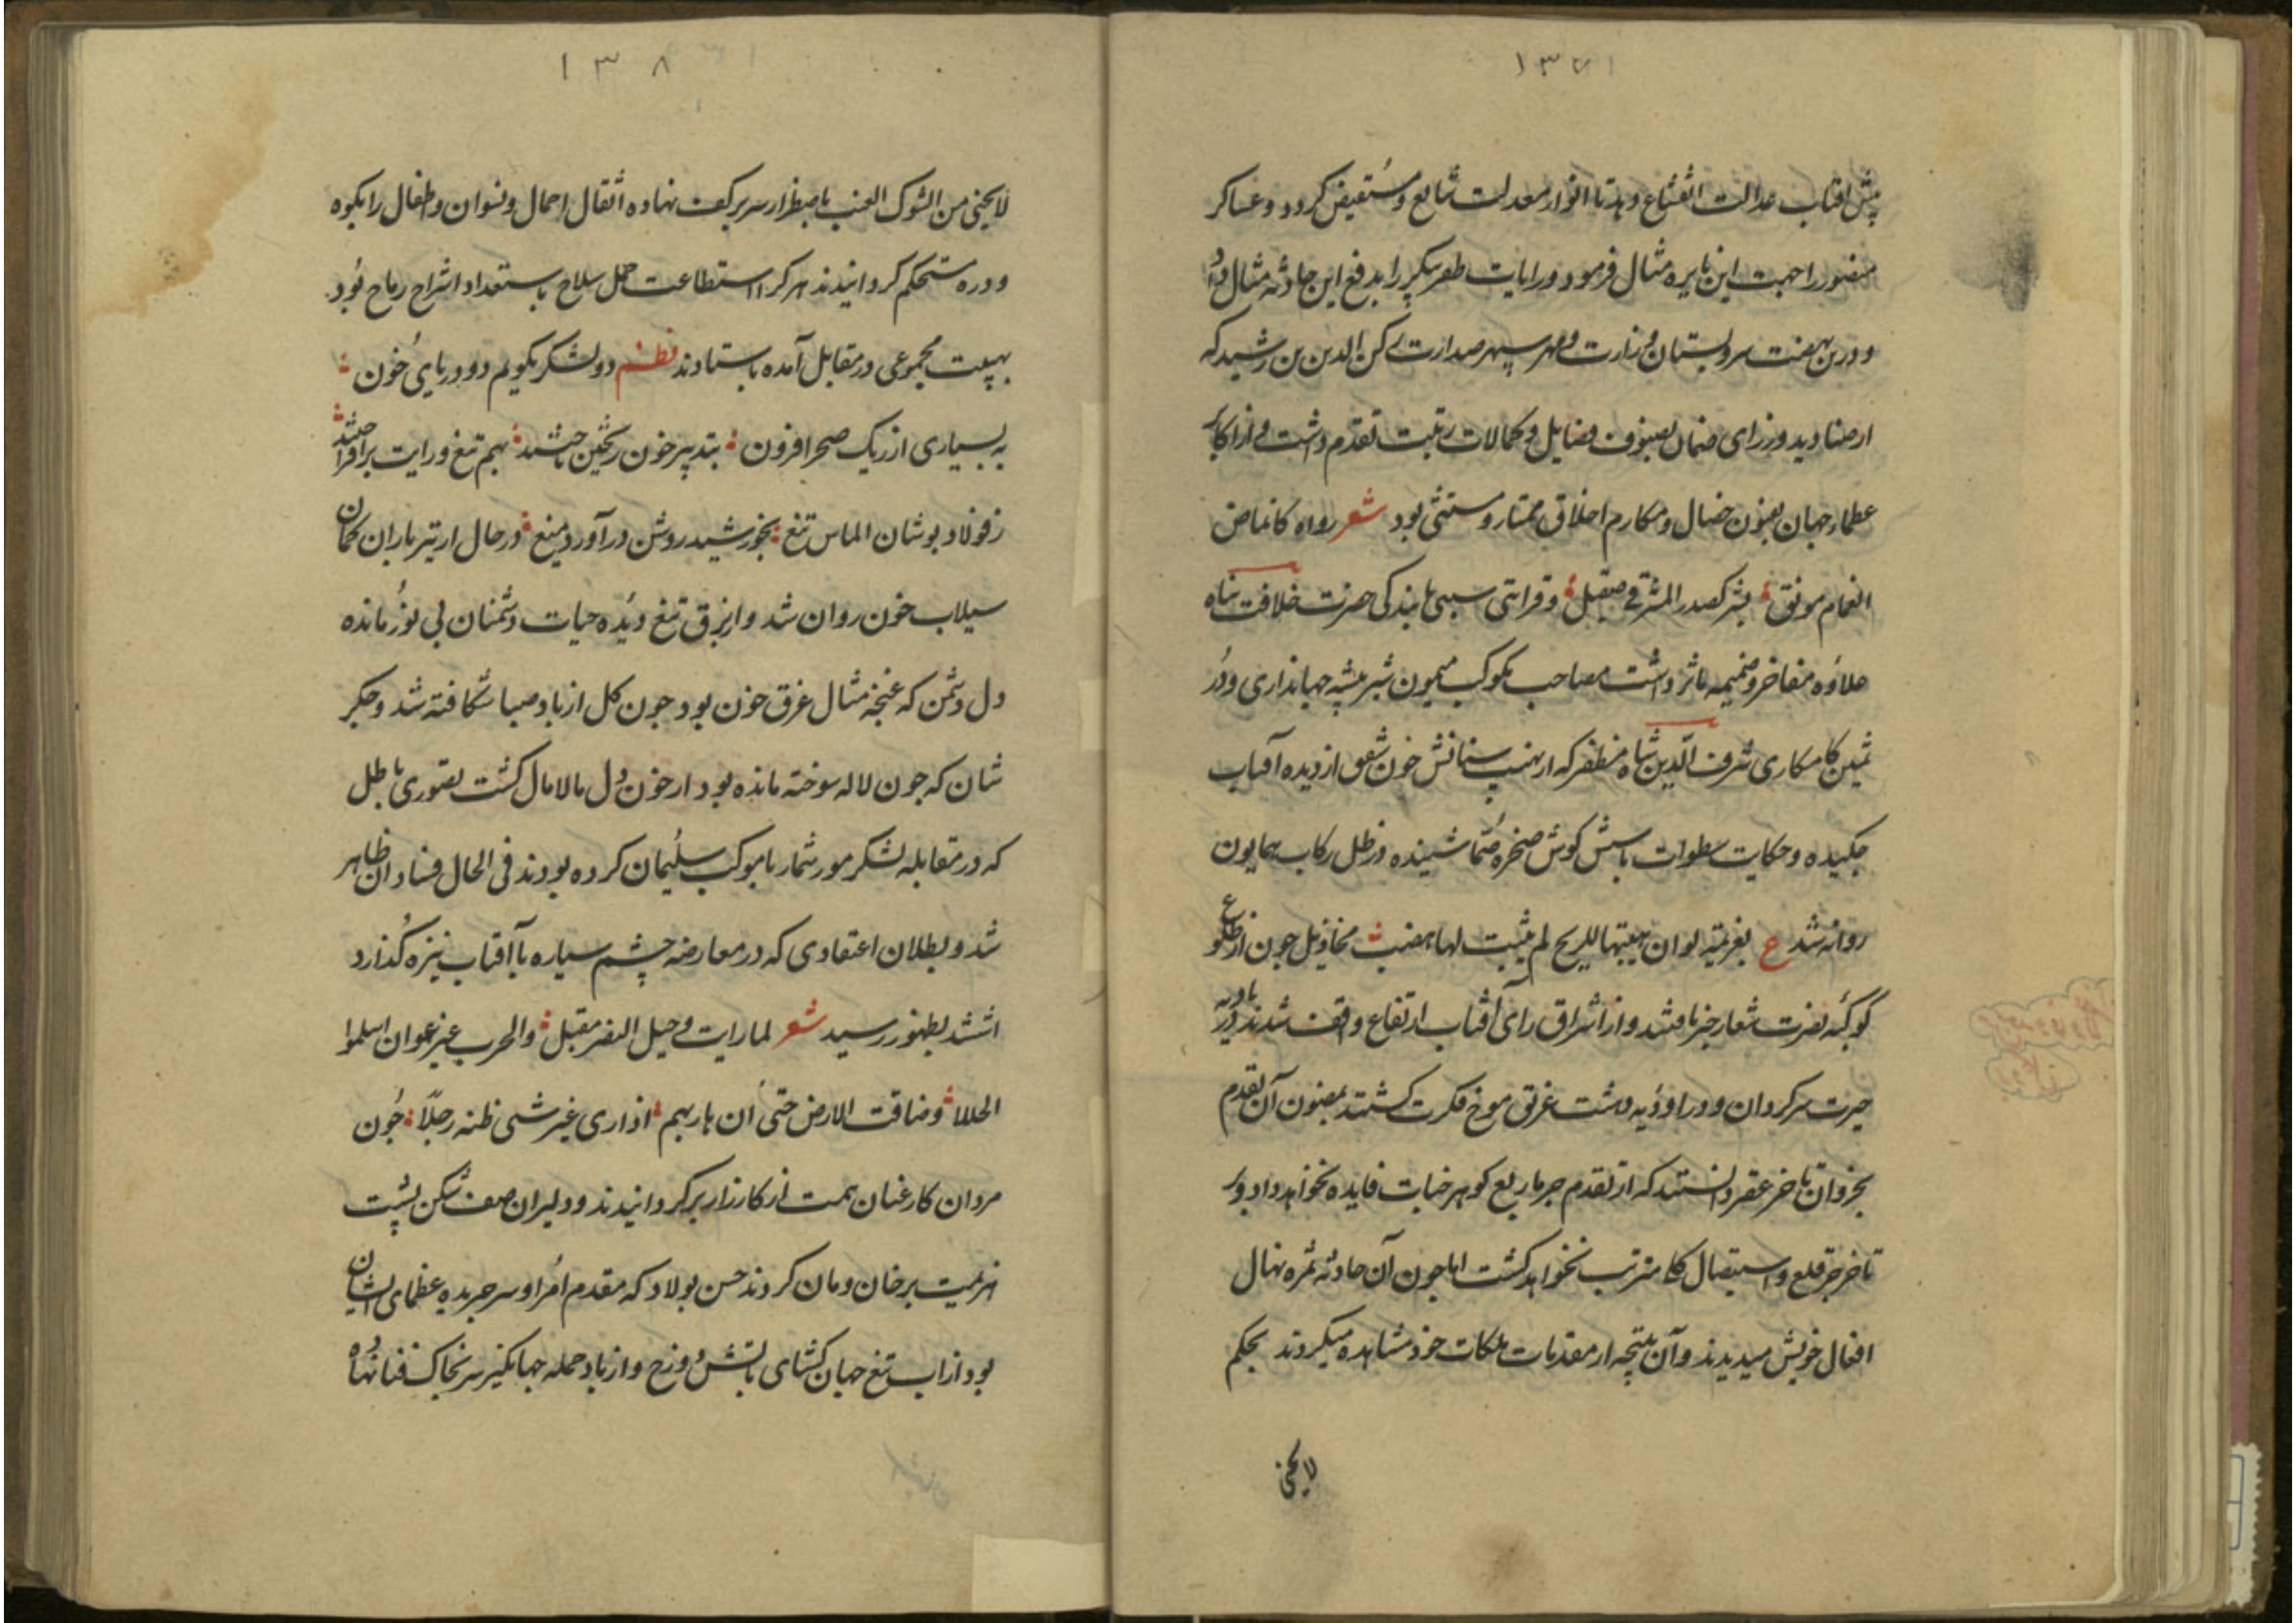 ۱۳۷
پیش افتاب عدالت انقشاع دهد تا انوار معدلت شایع و مستفیض کردد و عساکر
منصور را جهت این نایره مثال فرمود و رایات ظفر پیکر را بدفع این حادثه مثال داد
و درین نهضت سرو بستان وزارت و مهر سپهر صدارت رکن الدین بن رشید که
از صنادید وزرای ضمان بصنوف فضایل و کمالات رتبت تقدم داشت و از اکابر
عظماء جهان بفنون خصال و مکارم اخلاق ممتاز و مستثنی بود شعر رواه کانماض
الغمام مونق بشر کصدر المشرفی صیقل و قرابتی سببی با بندکی حضرت خلافت پناه
علاوه مفاخر و ضمیمه ماثر داشت مصاحب موکب میمون شیر بیشه جهانداری و در
ثمین کامکاری شرف الدین شاه مظفر که از نهیب سنانش خون شفق از دیده آفتاب
چکیده و حکایت سطوات باسش کوش صخره صما شنیده در ظل رکاب همایون
روانه شد ع بعزیمة لو ان هیبتها للریح لم یثبت لها هضب مخاذیل چون از طلوع
کوکبه نصرت شعار خبر یافتند و از اشراق رای افتاب ارتفاع واقف شدند در بادیه
حیرت سرکردان و در اودیه دهشت غریق موج فکرت کشتند بمضمون آن تقدم
نحر و ان تاخر عقر دانستند که از تقدم جز ماریع کوهر حیات فایده نخواهد داد و بر
تاخر جز قلع و استیصال کلی مترتب نخواهد کشت اما چون آن حادثه ثمره نهال
افعال خویش میدیدند و آن نتیجه از مقدمات ملکات خود مشاهده میکردند بحکم
لا یجنی
۱۳۸
لا یجنی من الشوک العنب باضطرار سر بر کف نهاده اثقال احمال و نسوان و اطفال را بکوه
و دره مستحکم کردانیدند هر کرا استطاعت حمل سلاح با استعداد اشراح رماح بود
بهیت مجموعی در مقابل آمده باستادند نظم دو لشکر نکویم دو دریای خون
به بسیاری از ریک صحرا فزون بتدبیر خون ریختن خاستند بهم تیغ و رایت برافراختند
ز فولاد بوشان الماس تیغ بخورشید روشن درآورد میغ در حال از تیر باران کمان
سیلاب خون روان شد و از برق تیغ دیده حیات دشمنان بی نور مانده
دل دشمن که غنچه مثال غرق خون بود چون کل از باد صبا شکافته شد و جکر
شان که چون لاله سوخته مانده بود از خون دل مالامال کشت تصوری باطل
که در مقابله لشکر مور شمار با موکب سلیمان کرده بودند فی الحال فساد آن ظاهر
شد و بطلان اعتقادی که در معارضه چشم سیاره با آفتاب نیزه کذارد
اشتند بظهور رسید شعر لما رایت و خیل النصر مقبل و الحرب غیر عوان اسلموا
الحللا وضاقت الارض حتی ان هاربهم اذا رای غیر شی ظنه رجلا چون
مردان کار عنان همت از کارزار برکردانیدند و دلیران صف شکن پشت
هزیمت بر خان و مان کردند حسن بولاد که مقدم امرا و سر جریده عظمای ایشان
بود از اب تیغ جهان کشای باتش دوزخ و از باد حمله جهانکیر سر بخاک فنا نهاد